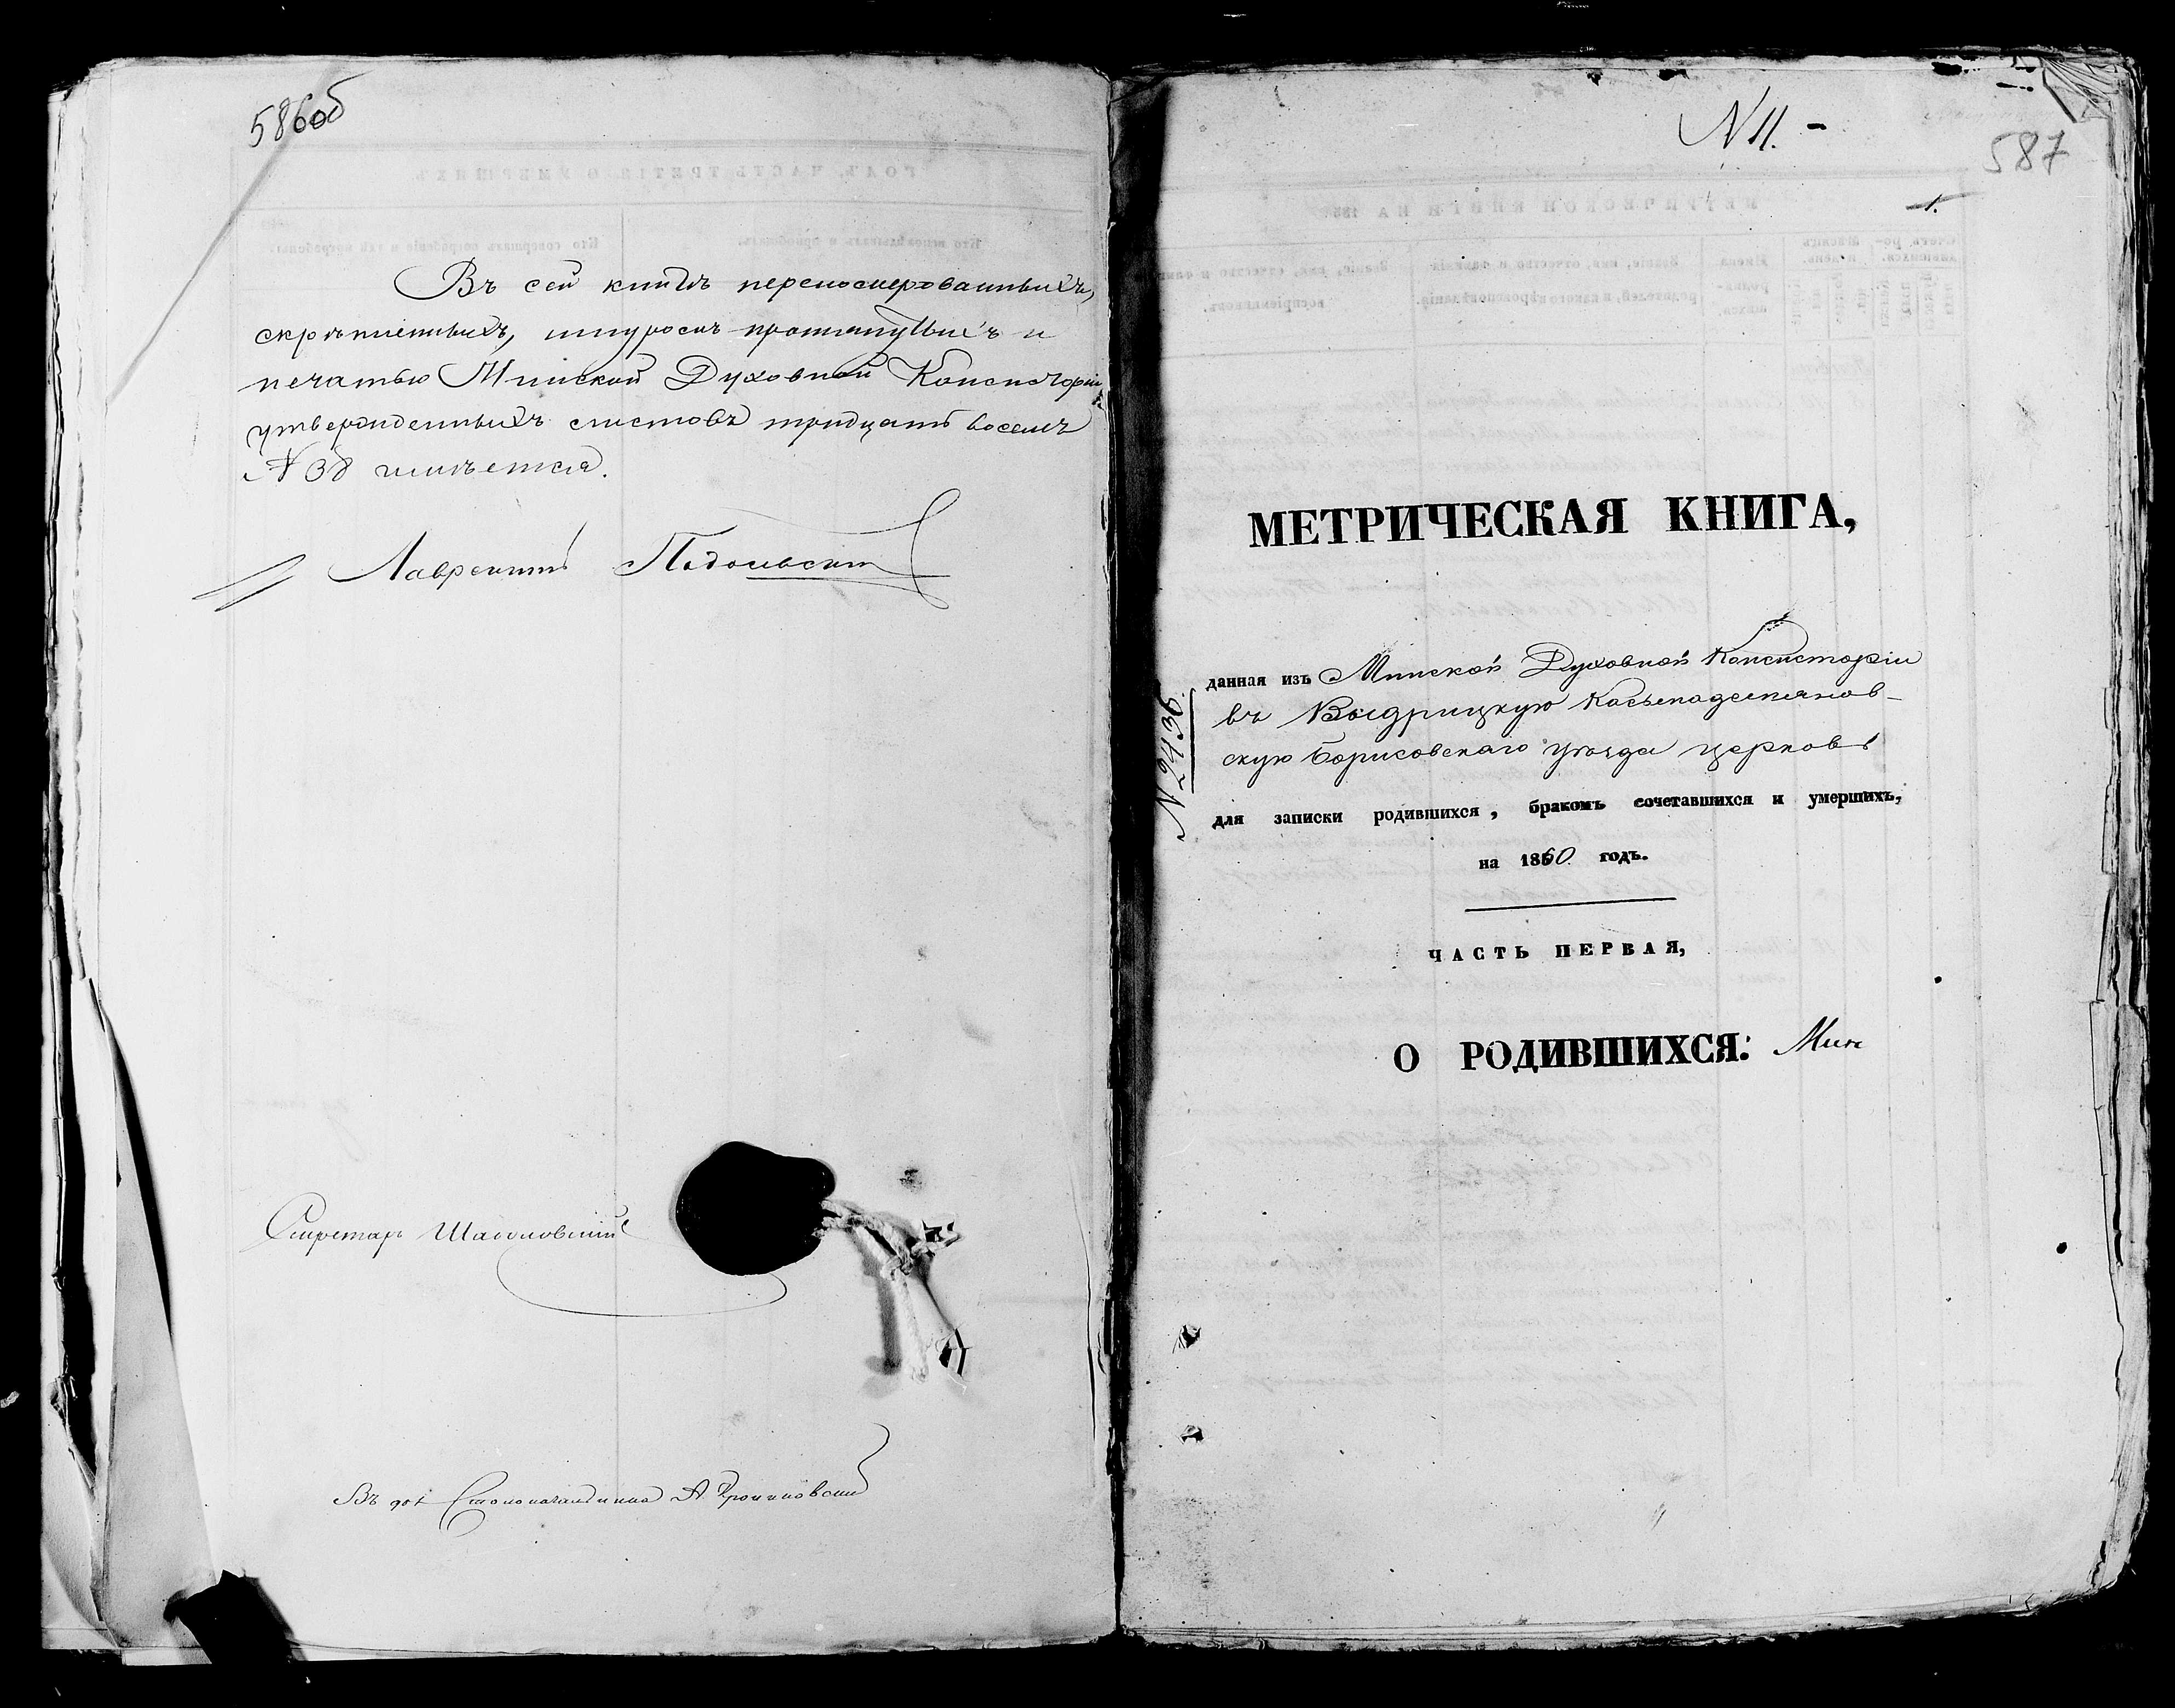 586об
Въ сей книгѣ перенумерованныхъ,
скрѣпленныхъ, шнуромъ протянутыхъ и
печатью Минской Духовной Консисторіи
утвержденныхъ листовъ тридцать восемь
№ 38 имѣется.
Лаврентій Подольскій
Секретарь
Въ дол. Столоначальника А
N 11. -
587
1.
МЕТРИЧЕСКАЯ КНИГА,
данная изъ Минской Духовной Консисторіи
въ Выдрицкую Косьмадеміанов-
скую Борисовскаго уѣзда церковь
для записки родившихся, бракомъ сочетавшихся и умершихъ,
на 1860 годъ.
N 2436.
ЧАСТЬ ПЕРВАЯ,
О РОДИВШИХСЯ: Мин